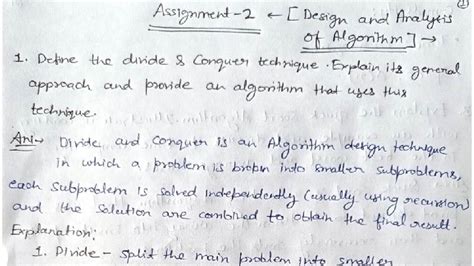 ①
Assignment-2 ← [Design and Analysis
of Algorithm] →
1. Define the divide & Conquer technique. Explain its general
approach and provide an algorithm that uses this
technique.
Ans- Divide and Conquer is an Algorithm design technique
in which a problem is broken into smaller subproblems,
each subproblem is solved independently (usually using recursion)
and the solution are combined to obtain the final result.
Explanation:
1. Divide - split the main problem into smaller